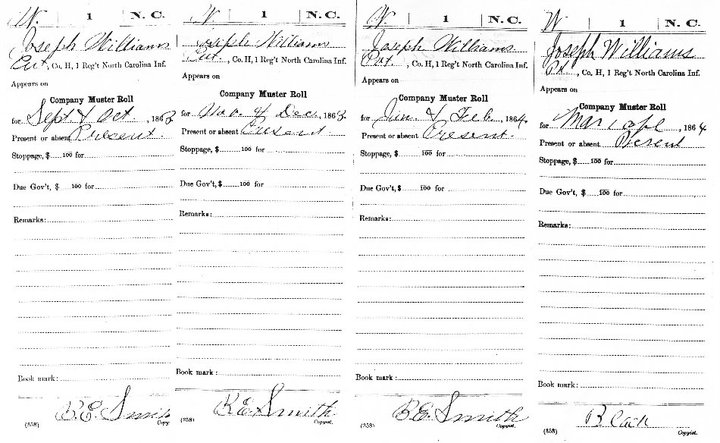 W | 1 | N.C.
Joseph Williams
Pvt., Co. H, 1 Reg't North Carolina Inf.
Appears on
Company Muster Roll
for Sept & Oct, 1863
Present or absent Present
Stoppage, $ 100 for
Due Gov't, $ 100 for
Remarks:
Book mark:
B.E. Smith
(358) Copyist.
W | 1 | N.C.
Joseph Williams
Pvt., Co. H, 1 Reg't North Carolina Inf.
Appears on
Company Muster Roll
for Nov & Dec, 1863
Present or absent Present
Stoppage, $ 100 for
Due Gov't, $ 100 for
Remarks:
Book mark:
B.E. Smith
(358) Copyist.
W | 1 | N.C.
Joseph Williams
Pvt., Co. H, 1 Reg't North Carolina Inf.
Appears on
Company Muster Roll
for Jan & Feb, 1864
Present or absent Present
Stoppage, $ 100 for
Due Gov't, $ 100 for
Remarks:
Book mark:
B.E. Smith
(358) Copyist.
W | 1 | N.C.
Joseph Williams
Pvt., Co. H, 1 Reg't North Carolina Inf.
Appears on
Company Muster Roll
for Mar apl, 1864
Present or absent Present
Stoppage, $ 100 for
Due Gov't, $ 100 for
Remarks:
Book mark:
(358) Copyist.